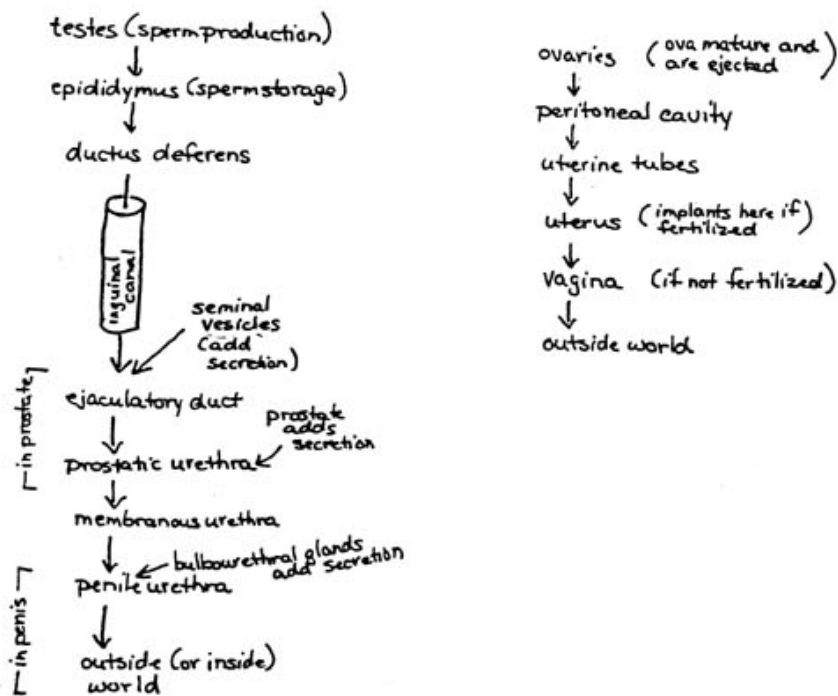 testes (sperm production)
epididymus (sperm storage)
ductus deferens
inguinal
canal
seminal
vesicles
(add
secretion)
in prostate
ejaculatory duct
prostate
adds
secretion
prostatic urethra
membranous urethra
bulbourethral glands
add secretion
in penis
penile urethra
outside (or inside)
world
ovaries (ova mature and
are ejected)
peritoneal cavity
uterine tubes
uterus (implants here if
fertilized)
vagina (if not fertilized)
outside world